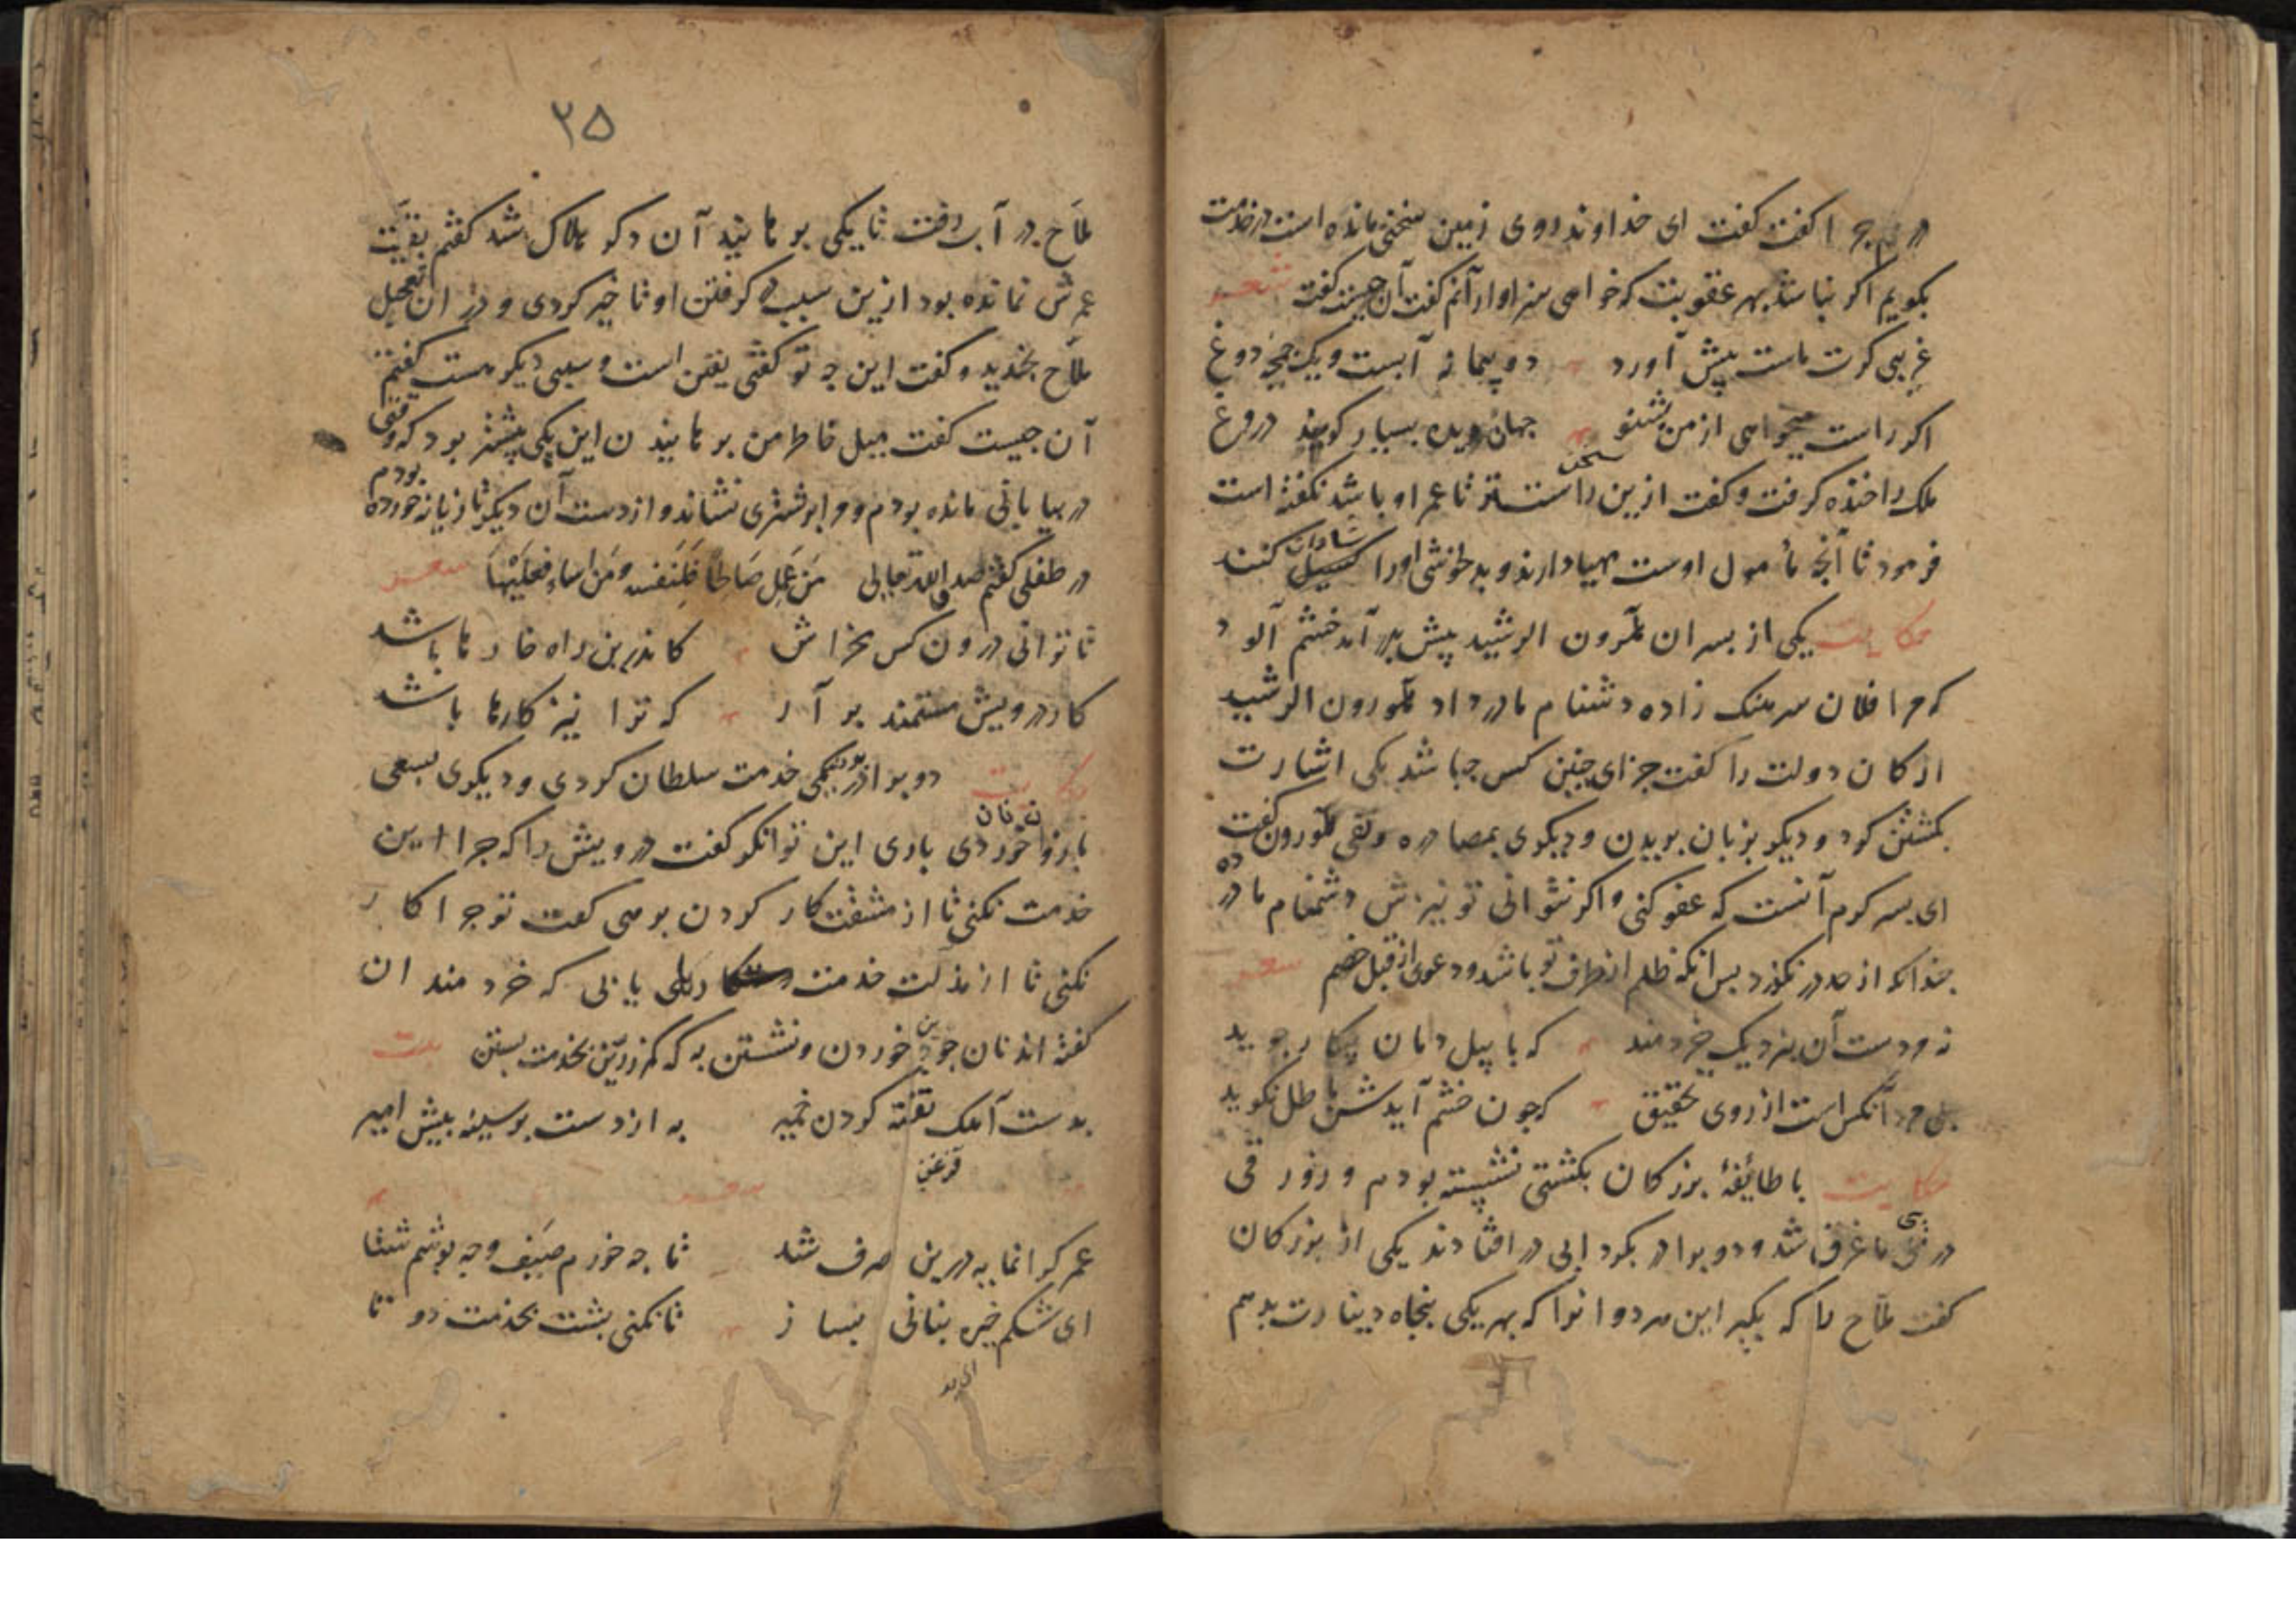 در هم چرا گفت گفت ای خداوند روی زمین سخنی مانده است در خدمت
بگویم اگر نباشد بهر عقوبت که خواهی سزاوارآنم گفت آن چیست گفت شعر
غریبی گرت ماست پیش آورد دو پیمانه آبست و یک چمچه دوغ
اگر راست میخواهی از من بشنو جهان دیده بسیار گوید دروغ
ملک را خنده گرفت و گفت ازین راست تر سخن تا عمر او باشد نگفته است
فرمود تا آنچه مأمول اوست مهیا دارند و بدلخوشی اورا کسیل کنند
حکایت یکی از پسران هرون الرشید پیش پدر آمد خشم آلود
که مرا فلان سرهنک زاده دشنام مادر داد هرون الرشید
ارکان دولت را گفت جزای چنین کس چه باشد یکی اشارت
بکشتن کرد و دیگر بزبان بریدن و دیگری بمصادره و نفی هرون گفت
ای پسر کرم آنست که عفو کنی و اگر نتوانی تو نیزش دشنام مادر ده
چندانکه از حد در نگذرد پس آنکه ظلم از طرف تو باشد و دعوی از قبل خصم شعر
نه مردست آن بنزدیک خردمند که با پیل دمان پیکار جوید
بلی مرد آنکس است از روی تحقیق که چون خشم آیدش باطل نگوید
حکایت با طائفهٔ بزرکان بکشتی نشسته بودم و زورقی
در پی ما غرق شد و دو برادر بگردابی در افتادند یکی از بزرکان
گفت ملاح را که بگیر این هر دو انرا که بهر یکی پنجاه دینارت بدهم
۲۵
ملاح در آب رفت تا یکی برهانید آن دگر هلاک شد گفتم بقیت
عمرش نمانده بود ازین سبب در گرفتن او تاخیر کردی و در ان تعجیل
ملاح بخندید و گفت این چه تو گفتی یقین است و سببی دیگر هست گفتم
آن چیست گفت میل خاطر من برهانیدن این یکی بیشتر بود که وقتی
در بیابانی مانده بودم و مرا بر شتری نشاند و از دست آن دیگر تازیانه خورده بودم
در طفلی گفتم صدق الله تعالی مَن عَمِلَ صَالِحًا فَلِنَفسِه وَمَن اساء فعلیها شعر
تا توانی درون کس مخراش کاندرین راه خارها باشد
کار درویش مستمند بر آر که ترا نیز کارها باشد
حکایت دو برادر بودند یکی خدمت سلطان کردی و دیگری بسعی
بازو نان خوردی باری این توانگر گفت درویش را که چرا این
خدمت نکنی تا از مشقت کار کردن برهی گفت تو چرا کار
نکنی تا از مذلت خدمت رهایی یابی که خردمندان
گفته اند نان جوین خوردن و نشستن به که کمر زرین بخدمت بستن بیت
بدست آهک تفته کردن خمیر به از دست بر سینه پیش امیر
شعر
عمر گرانمایه درین صرف شد تا چه خورم صیف و چه پوشم شتا
ای شکم خیره بنانی بساز تا نکنی پشت بخدمت دو تا